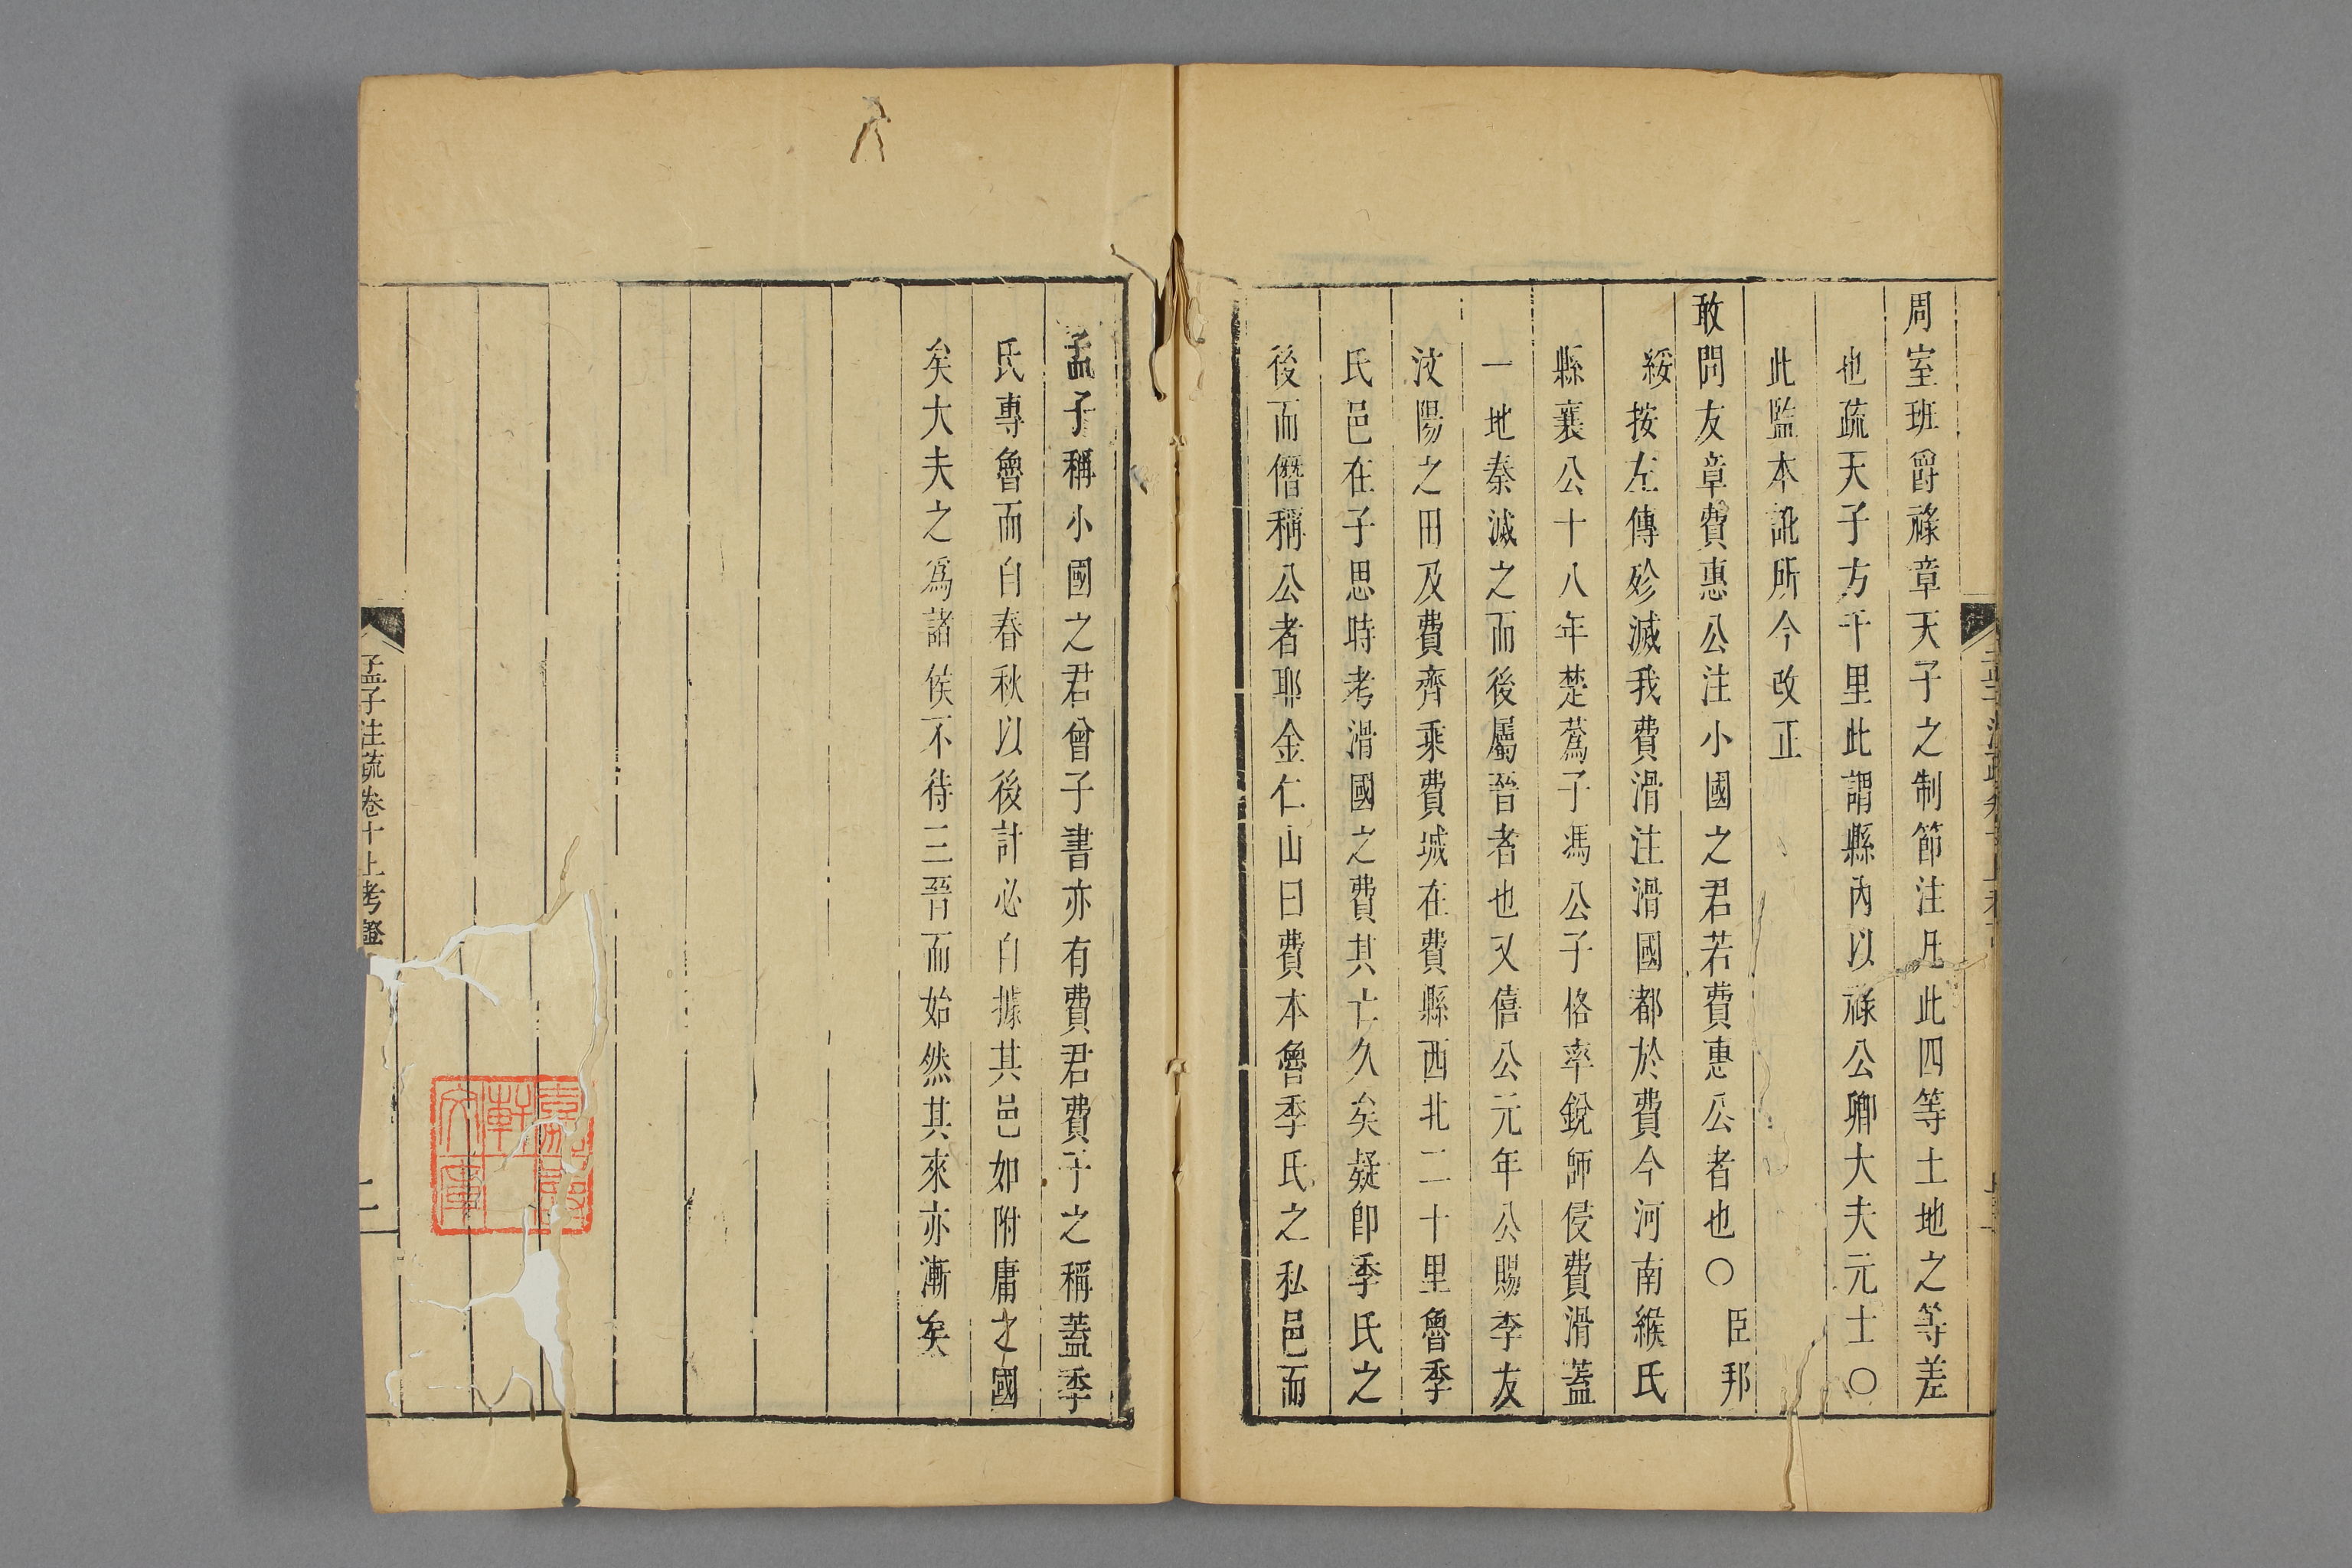 周室班爵祿章天子之制節注凡此四等土地之等差
也疏天子方千里此謂縣內以祿公卿大夫元士○
此監本訛所今改正
敢問友章費惠公注小國之君若費惠公者也○臣邦
綏按左傳殄滅我費滑注滑國都於費今河南緱氏
縣襄公十八年楚蒍子馮公子格率銳師侵費滑蓋
一地秦滅之而後屬晉者也又僖公元年公賜季友
汶陽之田及費齊乘費城在費縣西北二十里魯季
氏邑在子思時考滑國之費其亡久矣疑卽季氏之
後而僭稱公者耶金仁山曰費本魯季氏之私邑而
孟子稱小國之君曾子書亦有費君費子之稱蓋季
氏專魯而自春秋以後計必自據其邑如附庸之國
矣大夫之爲諸侯不待三晉而始然其來亦漸矣
孟子注疏卷十上考證